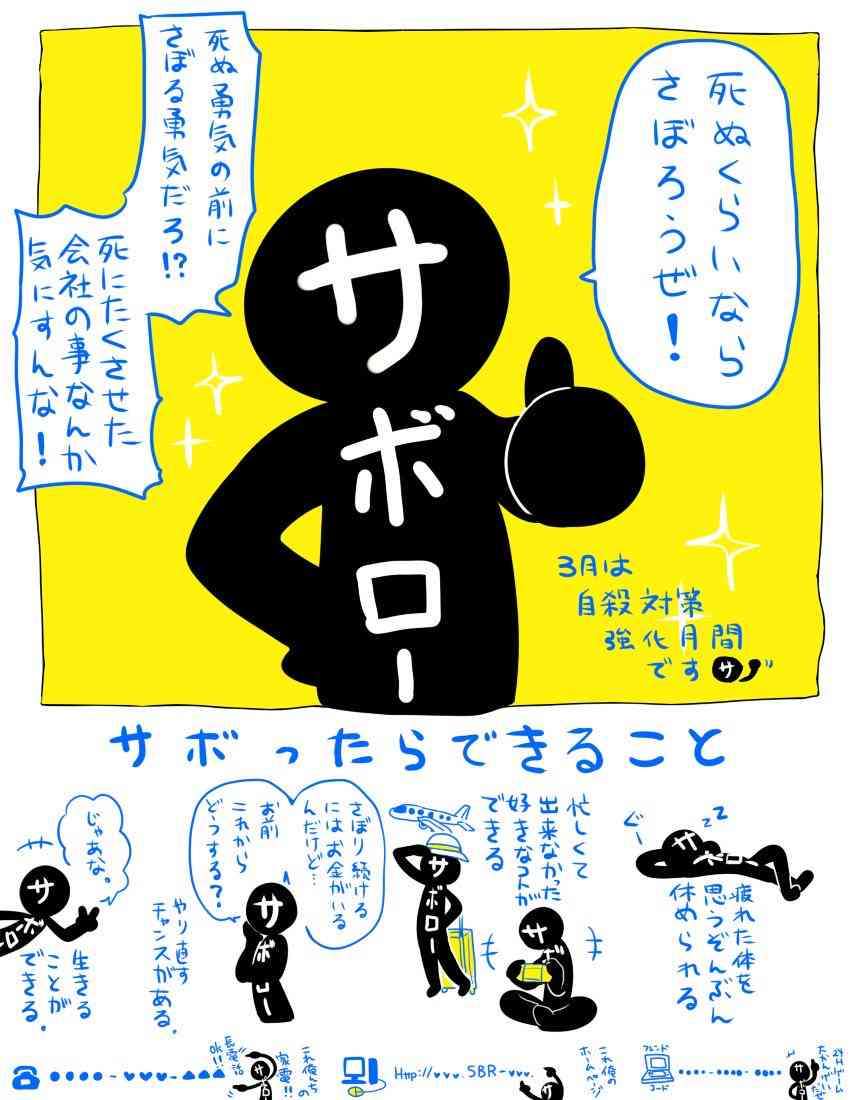 死ぬくらいなら
さぼろうぜ！
死ぬ勇気の前に
さぼる勇気だろ!?
死にたくさせた
会社の事なんか
気にすんな！
サボロー
3月は
自殺対策
強化月間
です
サ
サボったらできること
ぐー
zzZ
サボロー
疲れた体を
思うぞんぶん
休められる
忙しくて
出来なかった
好きなコトが
できる
サボロー
サボ
さぼり続ける
にはお金がいる
んだけど…
お前
これから
どうする？
サボロー
やり直す
チャンスがある。
じゃあな。
サボロー
生きる
ことが
できる。
長電話
OK!!
これ俺んちの
家電!!
サボロ
Http://♥♥♥.SBR-♥♥♥.
これ俺の
ホームページ
サ
フレンド
コード
24Hゲーム
サボロ